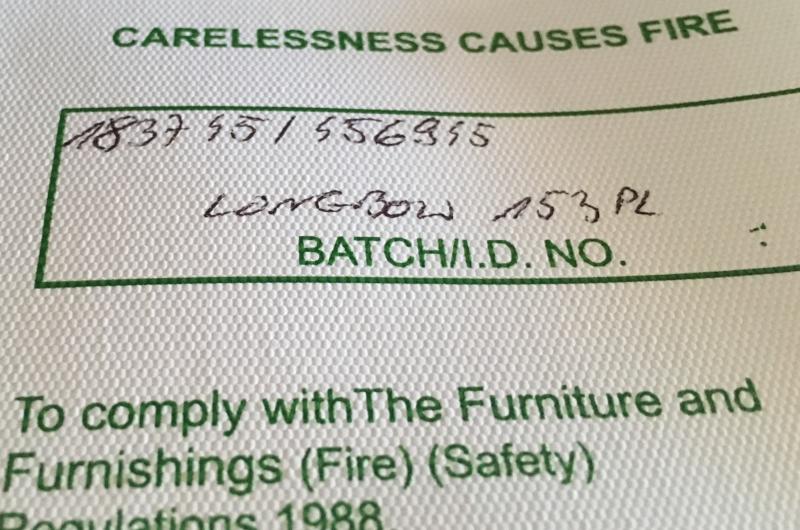 CARELESSNESS CAUSES FIRE
183745/ 556945
LONGBOW 153 PL
BATCH/I.D. NO.
To comply withThe Furniture and
Furnishings (Fire) (Safety)
Regulations 1988